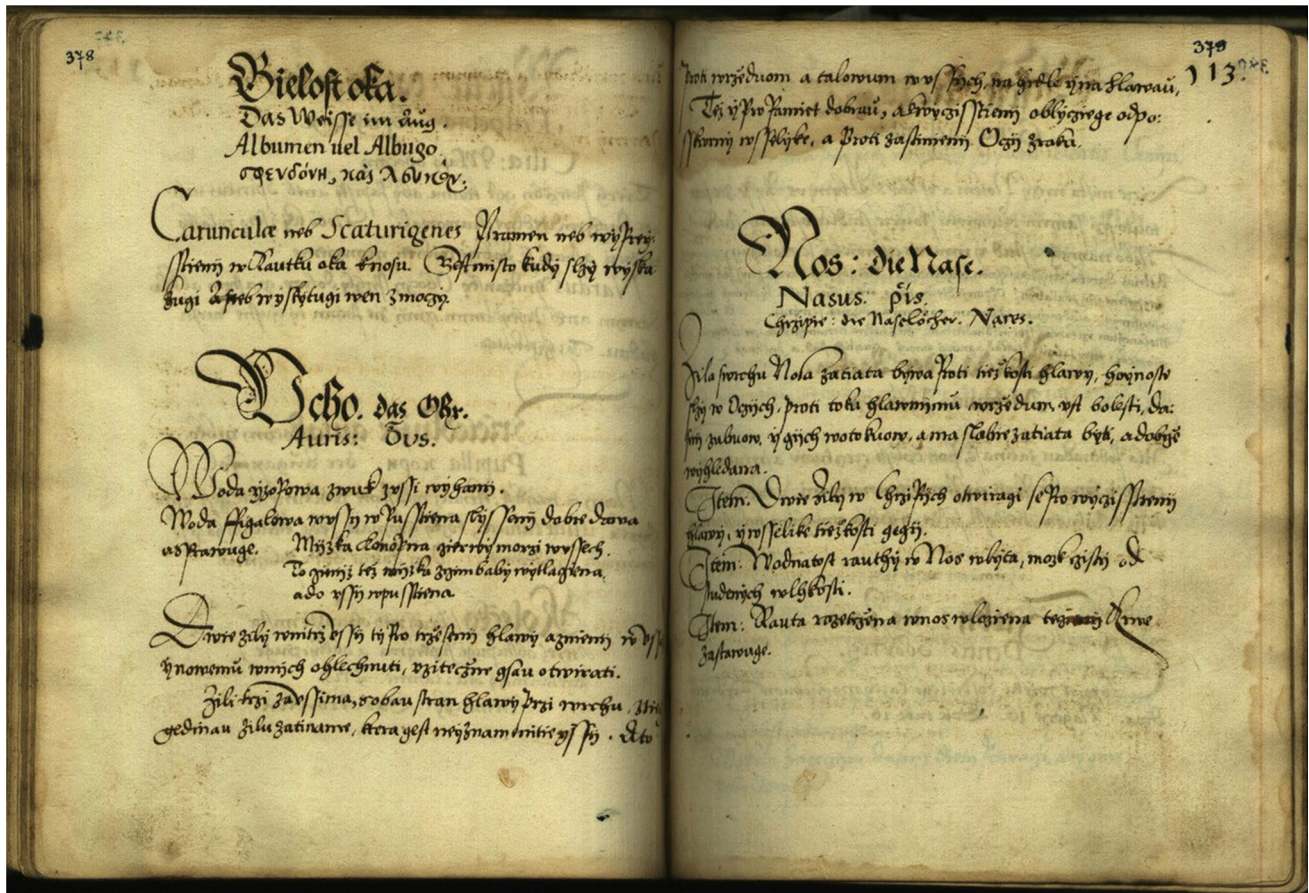 378
Bielost oka.
Das Weisse im Aug.
Albumen uel Albugo.
Carunculæ neb Scaturigenes Pramen neb
w Kautku oka k nosu. Gest misto kudy slzy
wen z moczy.
Vcho. das Ohr.
Auris: Ὂvs.
Woda yzopowa zwuk z vssi wyhani.
Woda ffigalowa w vssy w pusstiena slyssenij dobre dawa
a sprawuge. Mijzka konopna czierwy morzi w vssech.
To czinij tez mijzka z gimbaby wytlaczena,
a do vssy wpusstiena
Dwie zily wnitrz vssy ty pro hlawy a
y nowemu w nich ohlechnuti, vziteczne gsau otwirati.
Zili trzi za vssima, s obau stran hlawy przi wrchu.
gedinau zilu zatiname, kera gest neyznamnitieyssy. A to
379
113.
proti wrzeduom a talowum w vssych, na hrdle y na hlawau,
Tez y pro Pamiet dobrau, a k wyczisstieni obliczege odpo:
wsselyke, a proti zastinieni Oczij zraku.
Nos: die Nase.
Nasus. ῥis.
Chrzipie: die Naslöcher. Nares.
Zila swrchu Nosa zatiata bywa proti tiezkosti hlawy, hoynosti
slzy w Oczych, proti toku hlawnimu wrzedum vst bolesti, da:
sny zubuow, y gijch wotokuow, a ma slabie zatiata byti, a dobrze
wyhledana.
Item: Dwie zily w Chrzipich otwiragi se pro wyczisstieni
hlawy, y wsselike tiezkosti gegij.
Item: Wodnatost rauthy w Nos wlyta, mozk czisti od
studenych wlhkosti.
Item: Rauta rozetrzena w nos wlozena Krwe
zastawuge.